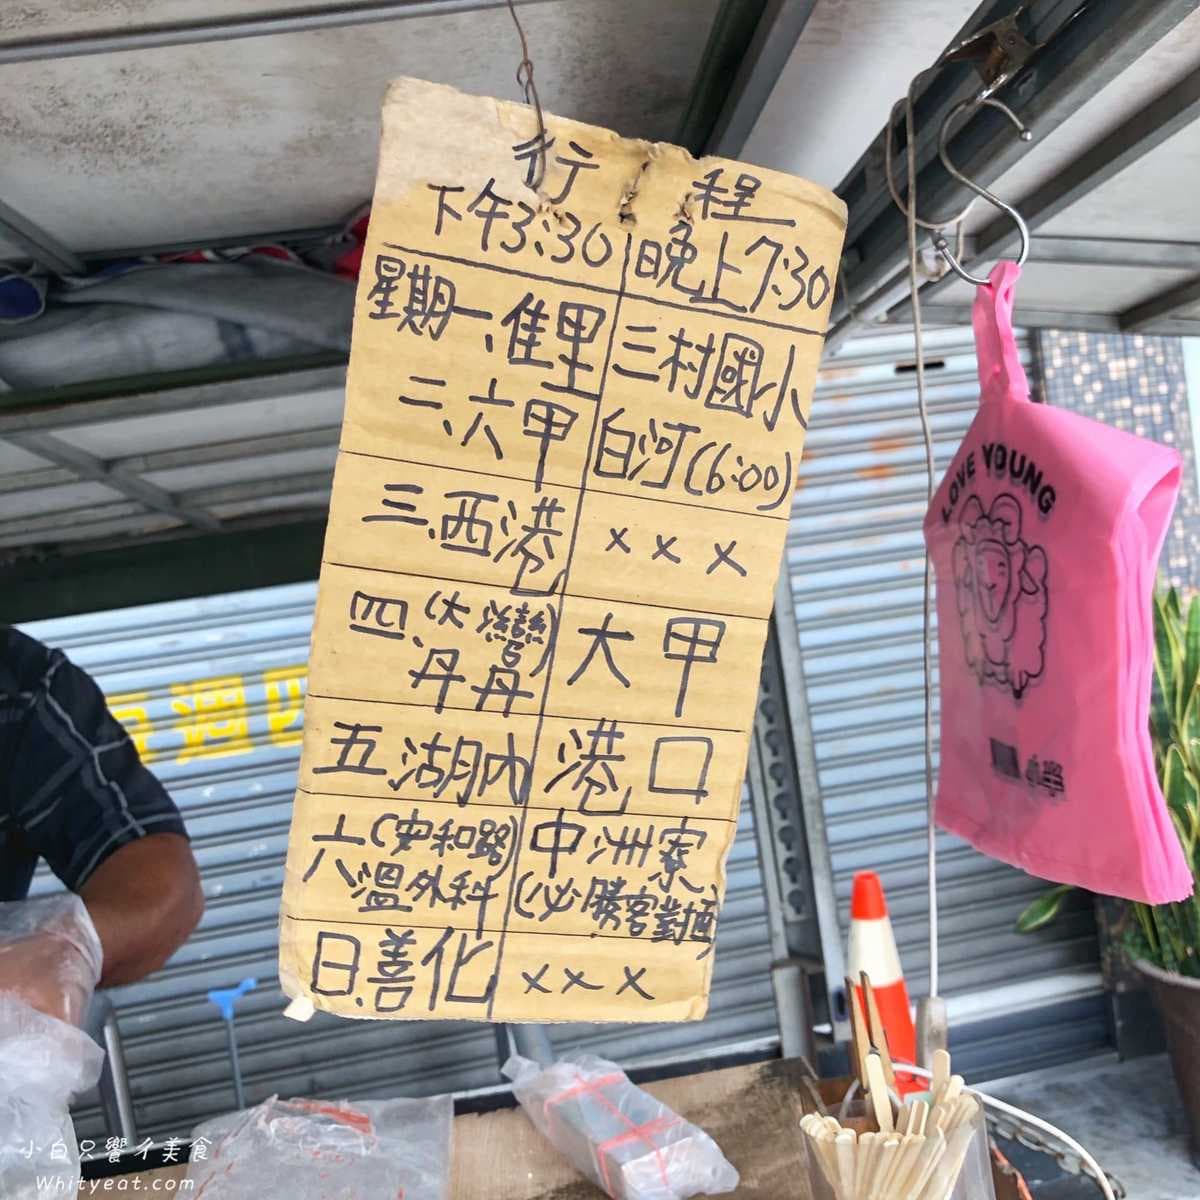 行程
下午3:30 晚上7:30
星期一、佳里 三村國小
二、六甲 白河(6:00)
三、西港 xxx
四、(大灣)丹丹 大甲
五 湖內 港口
六(安和路)溫外科 中洲寮(必勝客對面)
日、善化 xxx
LOVE YOUNG
每週四
小白只饗ㄔ美食
Whityeat.com